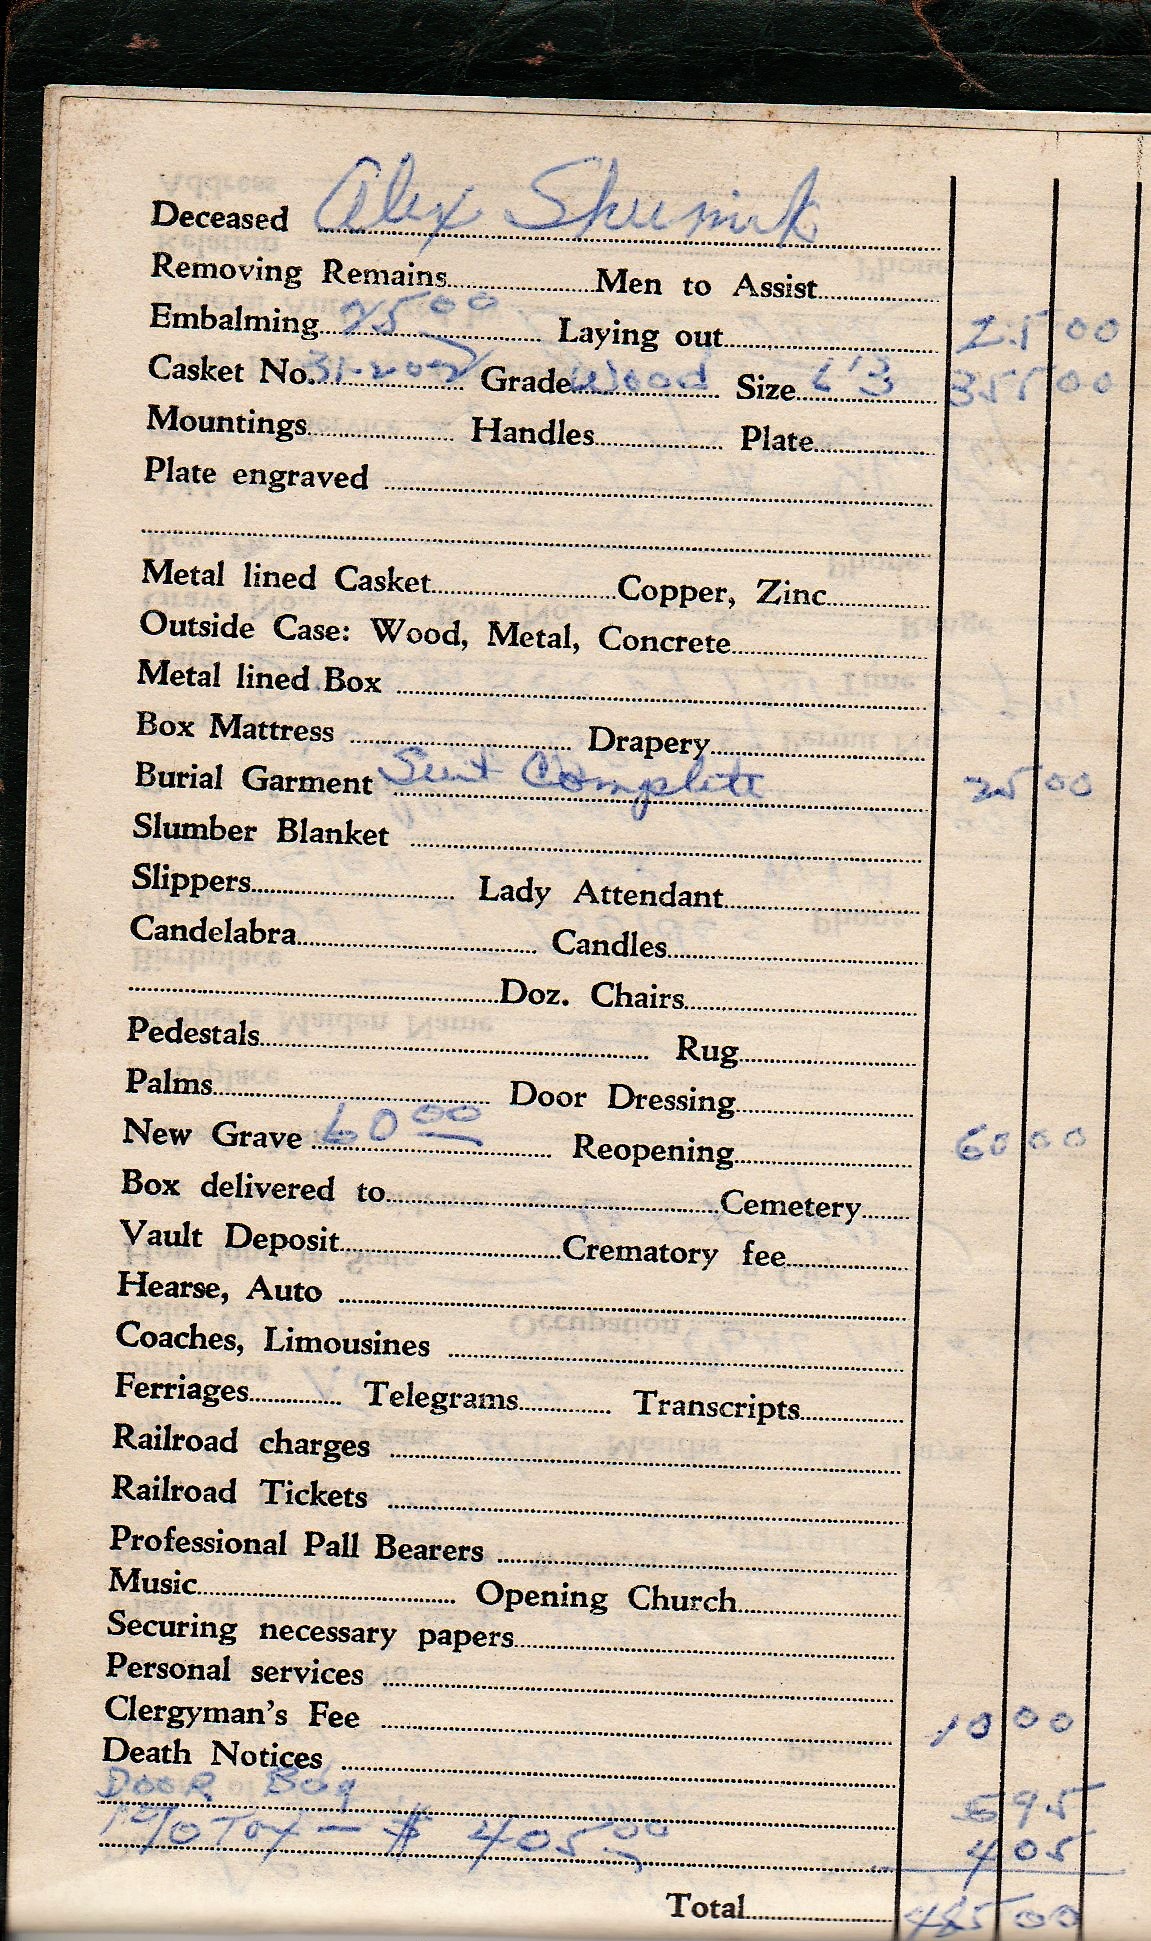 Deceased Alex Skumik
Removing Remains Men to Assist
Embalming 25 00 Laying out 25 00
Casket No. 31-202 Grade Wood Size 6'3 355 00
Mountings Handles Plate
Plate engraved
Metal lined Casket Copper, Zinc
Outside Case: Wood, Metal, Concrete
Metal lined Box
Box Mattress Drapery
Burial Garment Suit Complete 25 00
Slumber Blanket
Slippers Lady Attendant
Candelabra Candles
Doz. Chairs
Pedestals Rug
Palms Door Dressing
New Grave 60 00 Reopening 60 00
Box delivered to Cemetery
Vault Deposit Crematory fee
Hearse, Auto
Coaches, Limousines
Ferriages Telegrams Transcripts
Railroad charges
Railroad Tickets
Professional Pall Bearers
Music Opening Church
Securing necessary papers
Personal services
Clergyman's Fee 10 00
Death Notices
Door Bdg 5 95
1% Tax - $ 405 00 4 05
Total 485 00